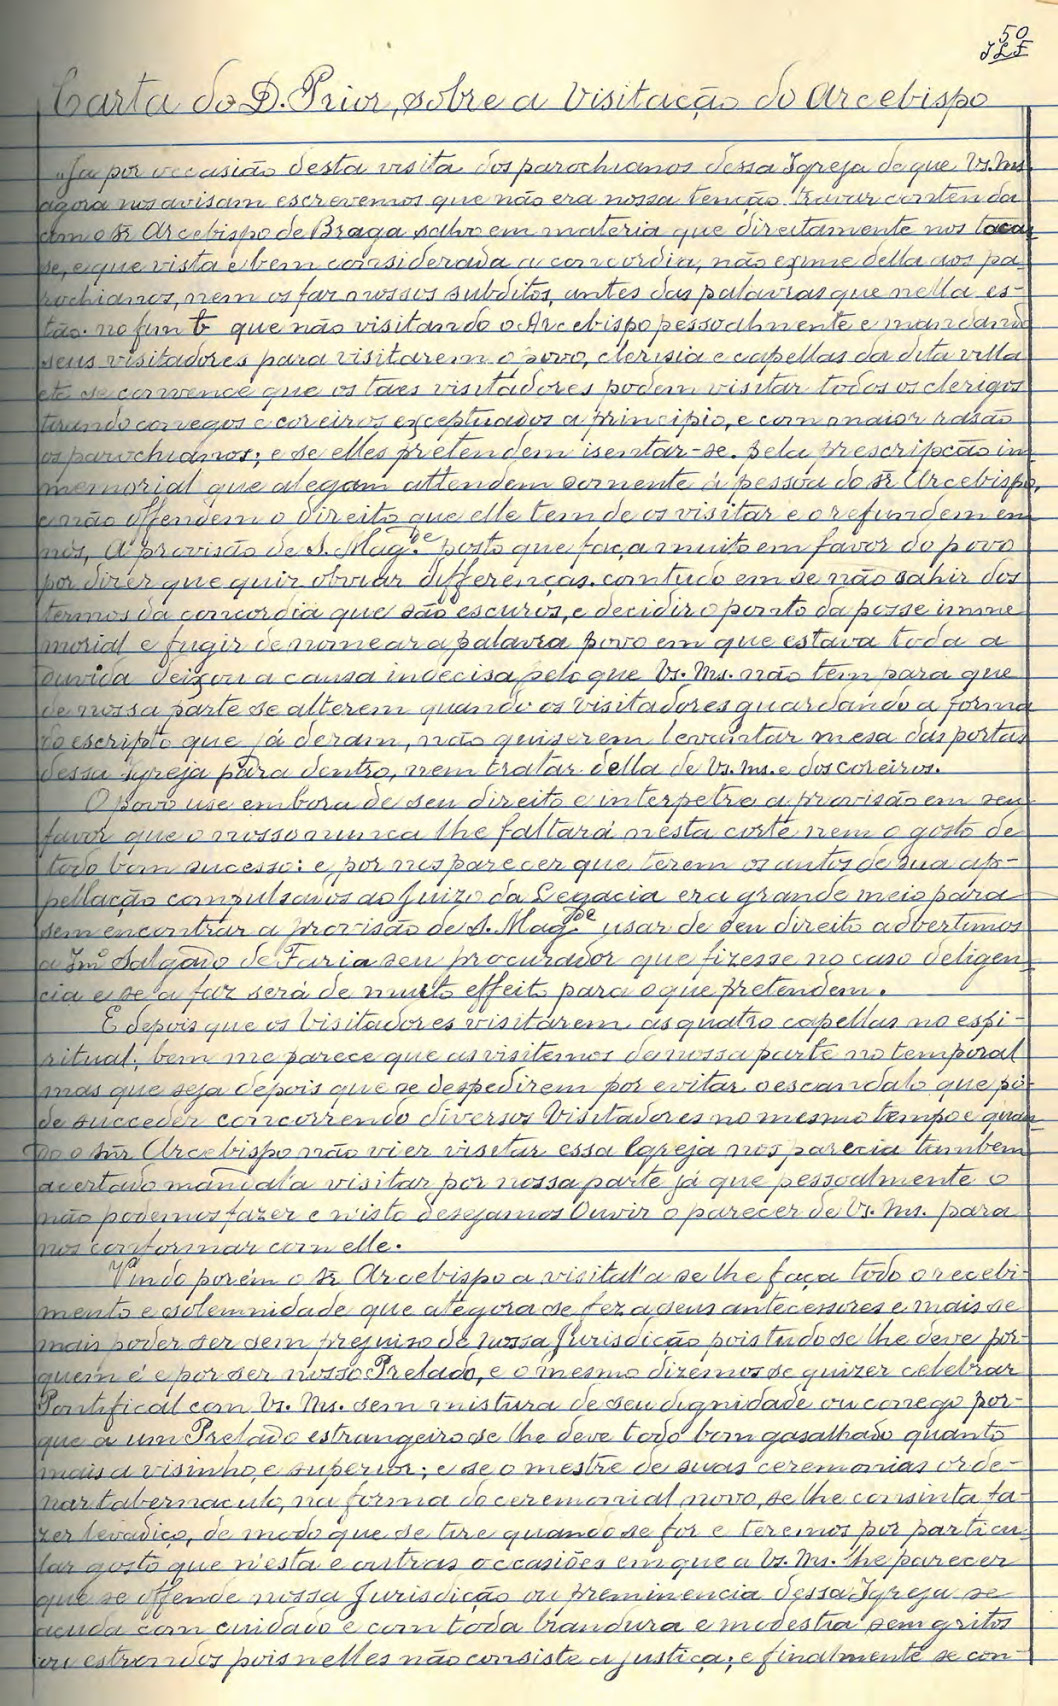 50
JLF
Carta do D. Prior, sobre a Visitação do Arcebispo
"Ja por occasião desta visita dos parochianos dessa Igreja de que Vs. Ms.
agora nos avisam escrevemos que não era nossa tenção travar contenda
com o Sr. Arcebispo de Braga salvo em materia que direitamente nos tocas-
se, e que vista e bem considerada a concordia, não exime della aos pa-
rochianos, nem os faz nossos subditos, antes das palavras que nella es-
tão no fim que não visitando o Arcebispo pessoalmente e mandando
seus visitadores para visitarem o povo, clerisia e capellas da dita villa
etc se convence que os taes visitadores podem visitar todos os clerigos
tirando conegos e coreiros exceptuados a principio, e com maior rasão
os parochianos; e se elles pretendem isentar-se pela prescripção im-
memorial que alegam attendem somente á pessoa do Sr. Arcebispo,
e não offendem o direito que elle tem de os visitar e o refundem em
nós, A provisão de S. Mag.de posto que faça muito em favor do povo
por dizer que quiz obviar differenças. comtudo em se não sahir dos
termos da concordia que são escuros, e decidir o ponto da posse imme-
morial e fugir de nomear a palavra povo em que estava toda a
duvida deixou a causa indecisa, pelo que Vs. Ms. não têm para que
de nossa parte se alterem quando os visitadores guardando a forma
do escripto que já deram, não quiserem levantar mesa das portas
dessa Igreja para dentro, nem tratar della de Vs. Ms. e dos coreiros.
O povo use embora de seu direito e interpetre a provisão em seu
favor que o nosso nunca lhe faltará nesta corte nem o gosto de
todo bom sucesso: e por nos parecer que terem os autos de sua ap-
pellação compulsados ao Juizo da Legacia era grande meio para
sem encontrar a provisão de S. Mag.de usar de seu direito advertimos
a Jm.o Salgado de Faria seu procurador que fizesse no caso deligen-
cia e se a faz será de muito effeito para o que pretendem.
E depois que os Visitadores visitarem as quatro capellas no espi-
ritual, bem me parece que as visitemos da nossa parte no temporal
mas que seja depois que se despedirem por evitar o escandalo que pó-
de succeder concorrendo diversos Visitadores no mesmo tempo e quan-
do o Snr. Arcebispo não vier visitar essa Igreja nos parecia tambem
acertado mandal'a visitar por nossa parte já que pessoalmente o
não podemos fazer e n'isto desejamos Ouvir o parecer de Vs. Ms. para
nos conformar com elle.
Vindo porém o Sr. Arcebispo a visital'a se lhe faça todo o recebi-
mento e solemnidade que ategora se fez a seus antecessores e mais se
mais poder ser sem prejuizo de nossa Jurisdição pois tudo se lhe deve por
quem é e por ser nosso Prelado, e o mesmo dizemos se quizer celebrar
Pontifical com Vs. Ms. sem mistura de seu dignidade ou conego por-
que a um Prelado estrangeiro se lhe deve todo bom gasalhado quanto
mais a visinho, e superior; e se o mestre de suas ceremonias orde-
nar tabernaculo, na forma do ceremonial novo, se lhe consinta fa-
zer levadiço, de modo que se tire quando se for e teremos por particu-
lar gosto que n'esta e outras occasiões em que a Vs. Ms. lhe parecer
que se offende nossa Jurisdição ou preminencia dessa Igreja se
acuda com cuidado e com toda brandura e modestia sem gritos
ou estrondos pois nelles não consiste a justiça; e finalmente se con-